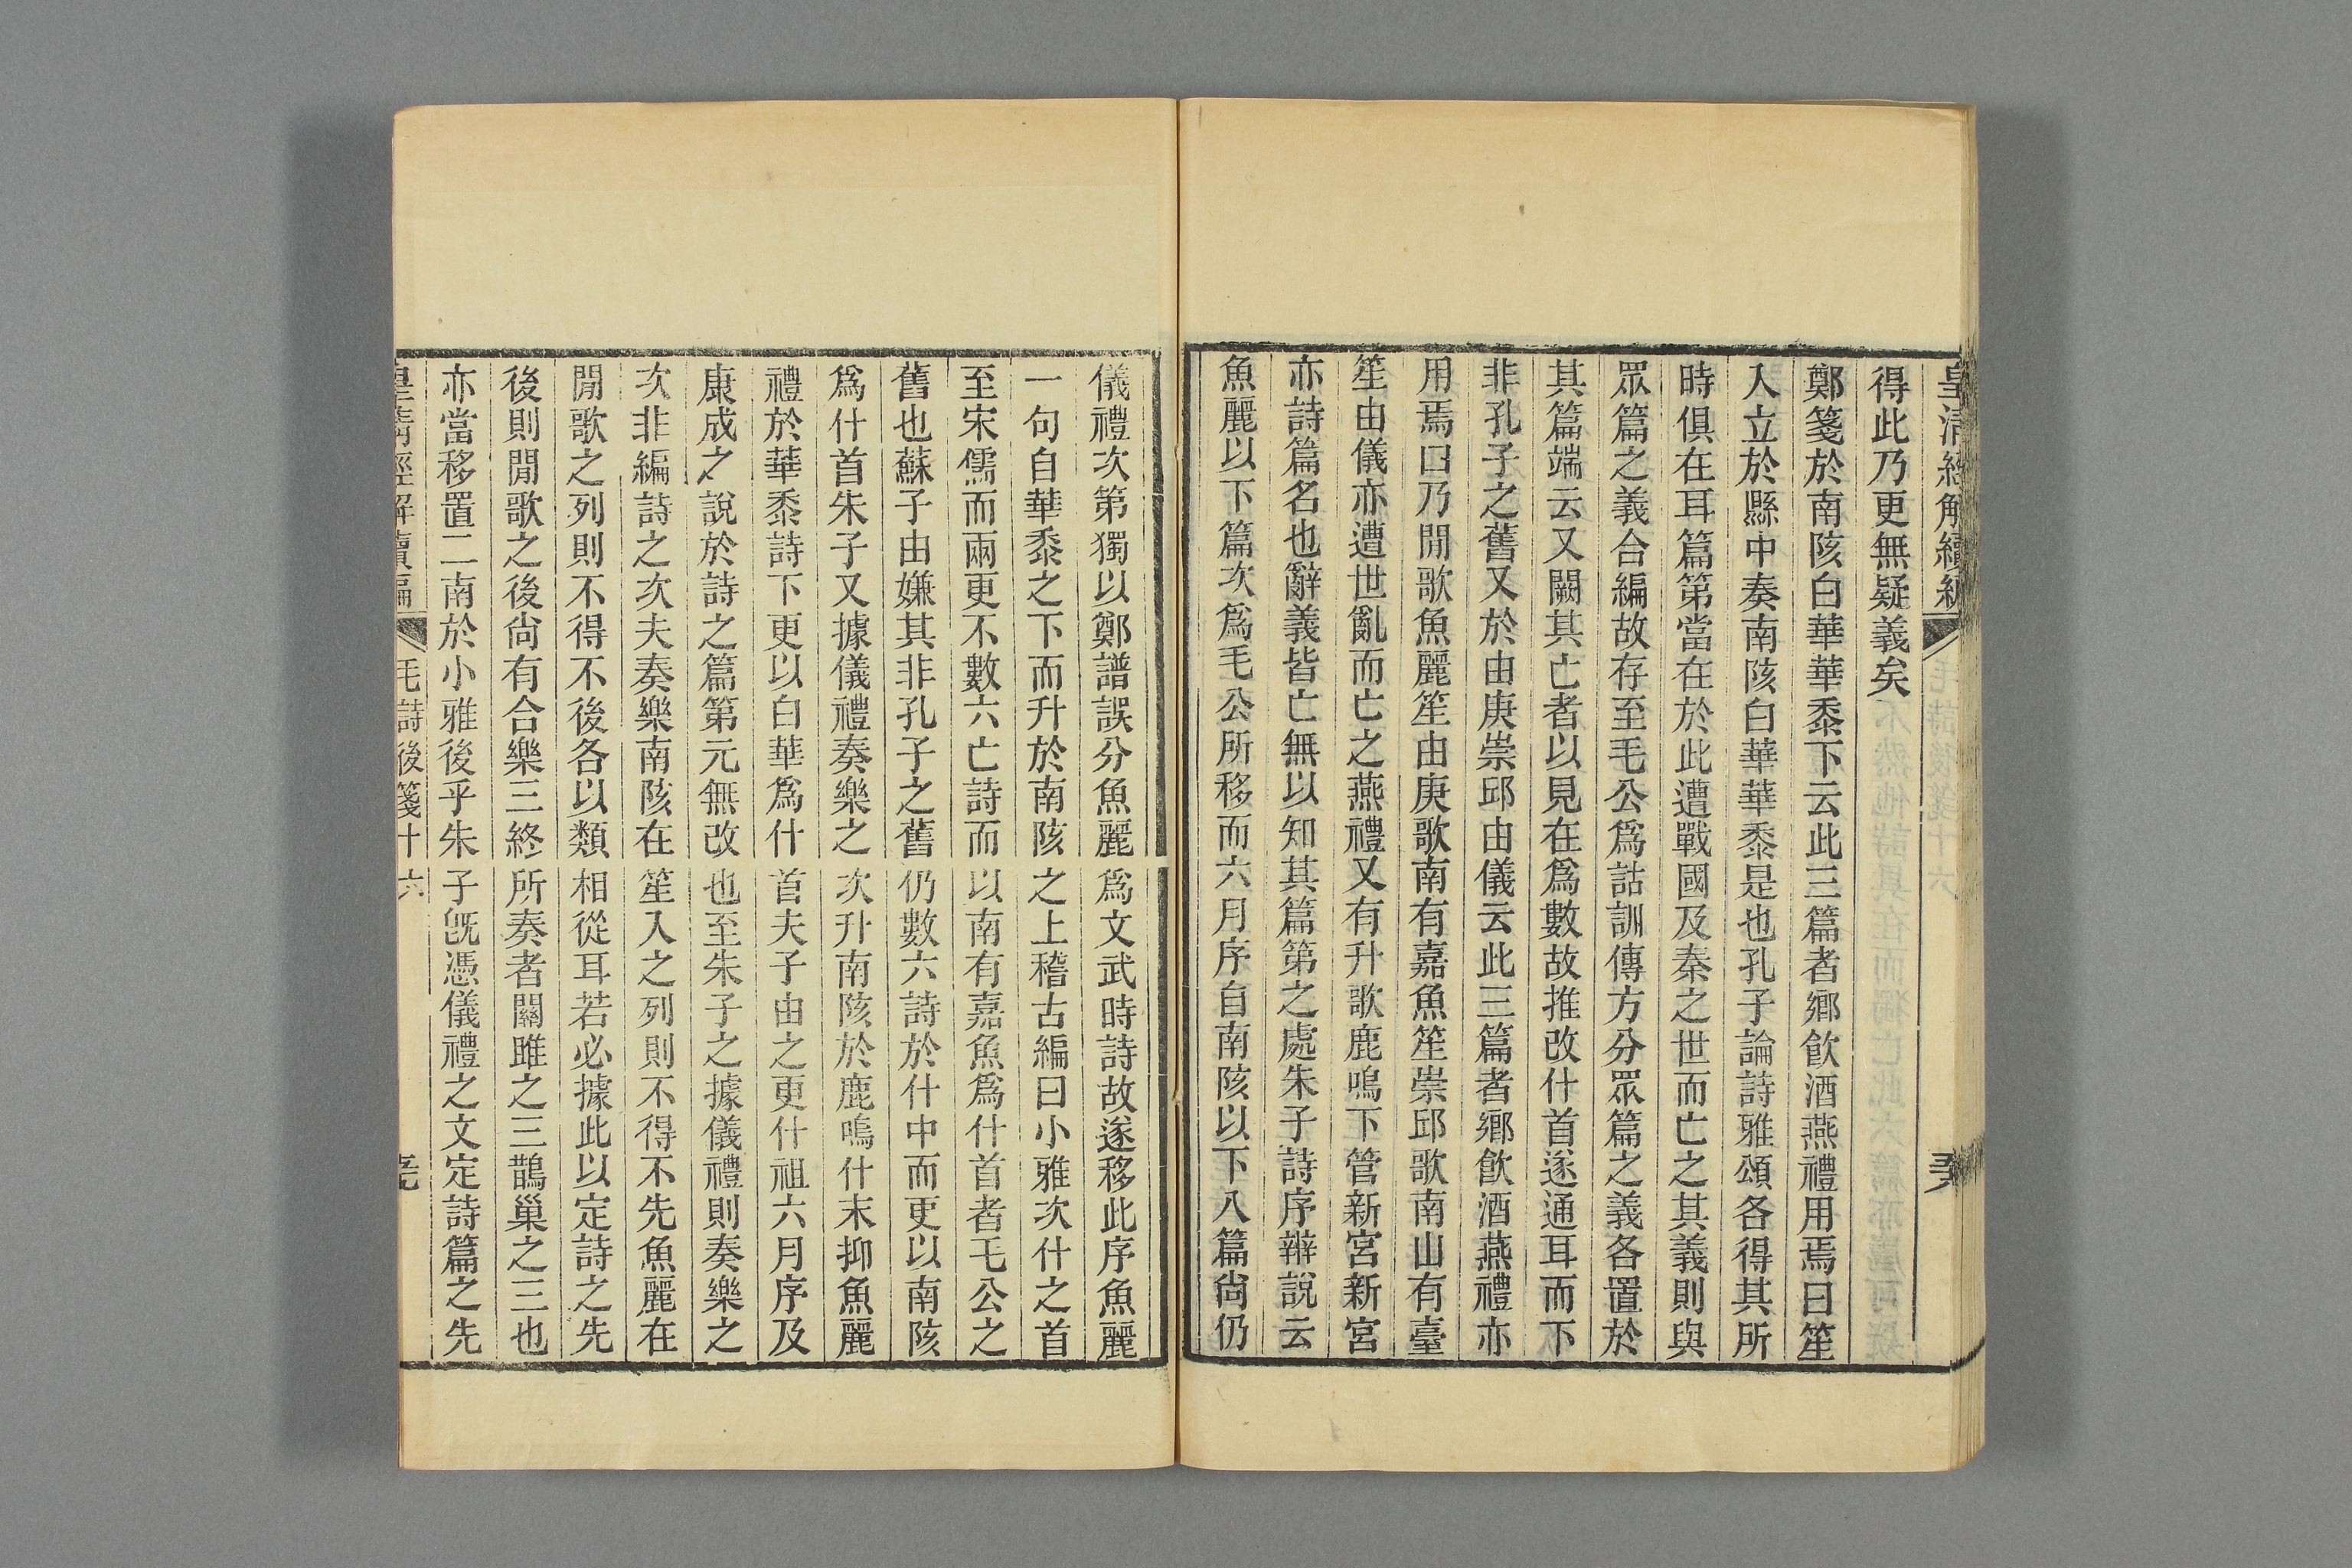 皇清經解續編
得此乃更無疑義矣
鄭箋於南陔白華華黍下云此三篇者鄉飲酒燕禮用焉曰笙
入立於縣中奏南陔白華華黍是也孔子論詩雅頌各得其所
時俱在耳篇第當在於此遭戰國及秦之世而亡之其義則與
眾篇之義合編故存至毛公爲詁訓傳方分眾篇之義各置於
其篇端云又闕其亡者以見在爲數故推改什首遂通耳而下
非孔子之舊又於由庚崇邱由儀云此三篇者鄉飲酒燕禮亦
用焉曰乃閒歌魚麗笙由庚歌南有嘉魚笙崇邱歌南山有臺
笙由儀亦遭世亂而亡之燕禮又有升歌鹿鳴下管新宮新宮
亦詩篇名也辭義皆亡無以知其篇第之處朱子詩序辨說云
魚麗以下篇次爲毛公所移而六月序自南陔以下八篇尙仍
儀禮次第獨以鄭譜誤分魚麗爲文武時詩故遂移此序魚麗
一句自華黍之下而升於南陔之上稽古編曰小雅次什之首
至宋儒而兩更不數六亡詩而以南有嘉魚爲什首者毛公之
舊也蘇子由嫌其非孔子之舊仍數六詩於什中而更以南陔
爲什首朱子又據儀禮奏樂之次升南陔於鹿鳴什末抑魚麗
禮於華黍詩下更以白華爲什首夫子由之更什祖六月序及
康成之說於詩之篇第元無改也至朱子之據儀禮則奏樂之
次非編詩之次夫奏樂南陔在笙入之列則不得不先魚麗在
閒歌之列則不得不後各以類相從耳若必據此以定詩之先
後則閒歌之後尙有合樂三終所奏者關雎之三鵲巢之三也
亦當移置二南於小雅後乎朱子旣憑儀禮之文定詩篇之先
皇清經解續編 毛詩後箋十六